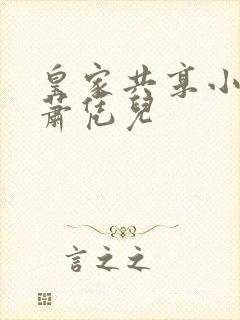 皇家共享小
蕭凭兒
言之之